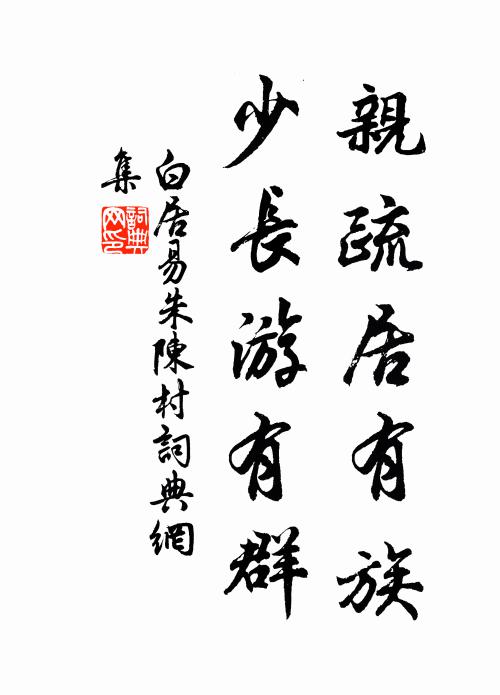 親疏居有族
少長游有群
白居易朱陳村詞典網
集
詞典
网印